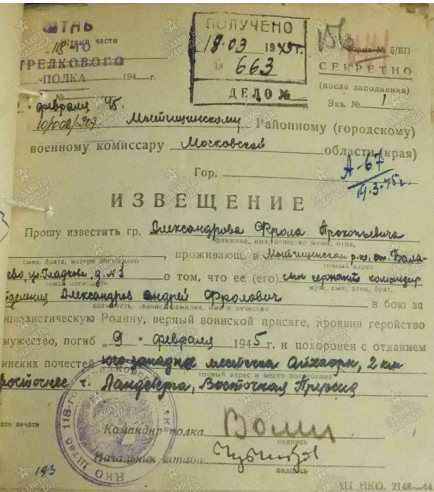 ШТАБ
118
СТРЕЛКОВОГО
ПОЛКА
194 г.
№
февраля 45
ПОЛУЧЕНО
19.03 1945 г.
663
ДЕЛО №
б/БП
СЕКРЕТНО
(после заполнения)
Экз. № 1
Мытищинскому Районному (городскому)
военному комиссару Московской области (края)
Гор.
А-67
19.3.45 г.
ИЗВЕЩЕНИЕ
Прошу известить гр. Александрова Фрола Прокопьевича
фамилия, имя, отчество жены, отца,
сына, брата, матери погибшего
проживающ. в Мытищинском р-не ст.
д. № 3 о том, что ее (его) сын сержант командир
муж, сын, отец, брат,
Александров Андрей Фролович в бою за
социалистическую Родину, верный воинской присяге, проявив геройство
мужество, погиб 9 февраля 1945 г. и похоронен с отданием
воинских почестей юго-западнее местечка 2 км
точный адрес и место погребения
восточнее г. Ландсберга, Восточная Пруссия
Командир полка
подпись
Начальник штаба
подпись
НКО
193